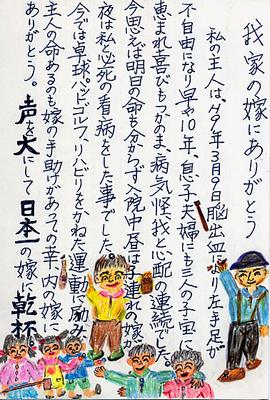 我家の嫁にありがとう
私の主人は、H9年3月9日脳出血により左手足が
不自由になり早や10年、息子夫婦にも三人の子宝に
恵まれ喜びもつかのま、病気怪我と心配の連続でした。
今思えば明日の命も分からず入院中昼は子連れの嫁が
夜は私と必死の看病をした事でした。
今では卓球、パットゴルフ、リハビリをかねた運動に励み
主人の命あるのも嫁の手助けがあっての幸、内の嫁に
ありがとう。声を大にして日本一の嫁に乾杯